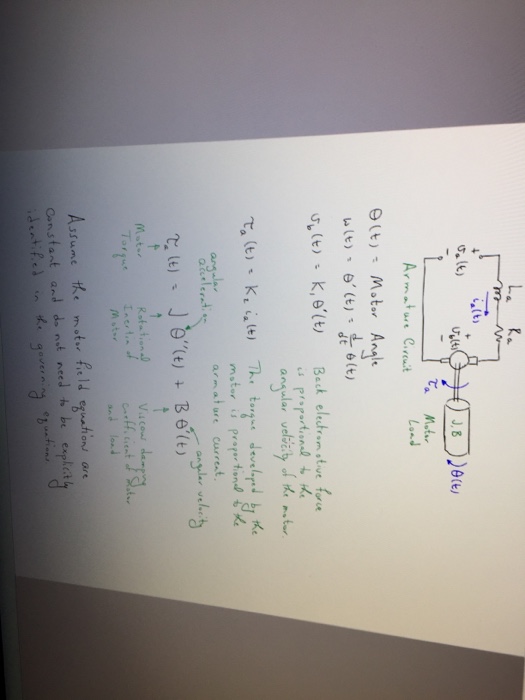 La Ra
ia(t)
+
va(t)
-
+
vb(t)
-
τa
J,B
θ(t)
Motor
Load
Armature Circuit
θ(t) = Motor Angle
ω(t) = θ'(t) = d/dt θ(t)
vb(t) = K1 θ'(t) Back electromotive force
is proportional to the
angular velocity of the motor.
τa(t) = K2 ia(t) The torque developed by the
motor is proportional to the
armature current.
angular
acceleration
τa(t) = J θ''(t) + B θ'(t)
angular velocity
Motor Rotational Viscous damping
Torque Inertia of coefficient of motor
Motor and load
Assume the motor field equations are
constant and do not need to be explicitly
identified in the governing equations